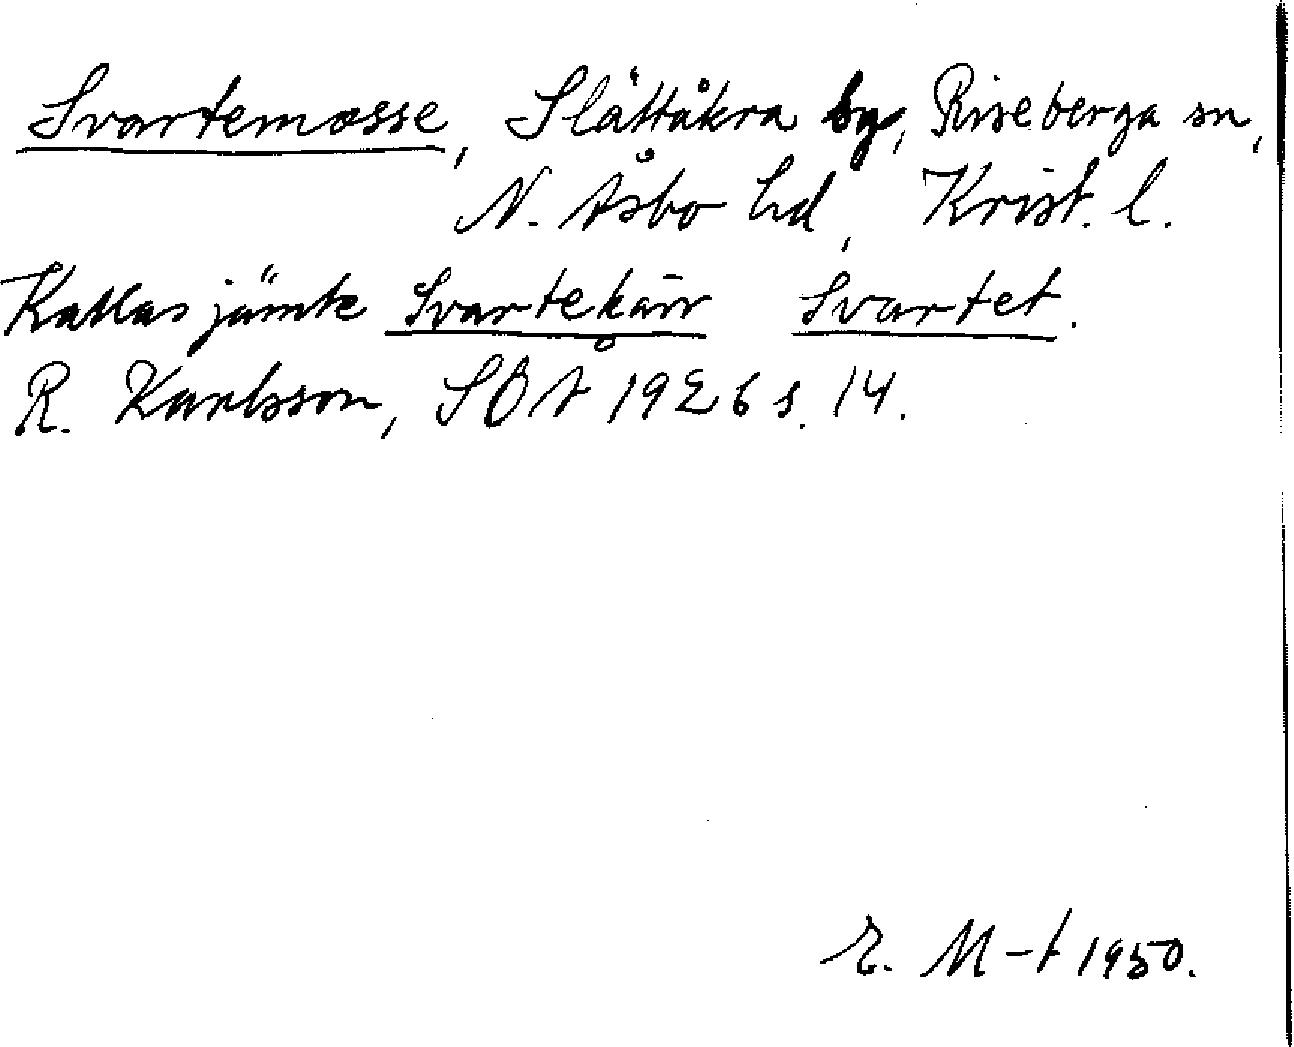 Svartemosse, Slättåkra by, Riseberga sn,
N. Åsbo hd, Krist. l.
Kallas jämte Svartekärr Svartet.
R. Karlsson, SOÅ 1926 s. 14.
E. M-t 1950.